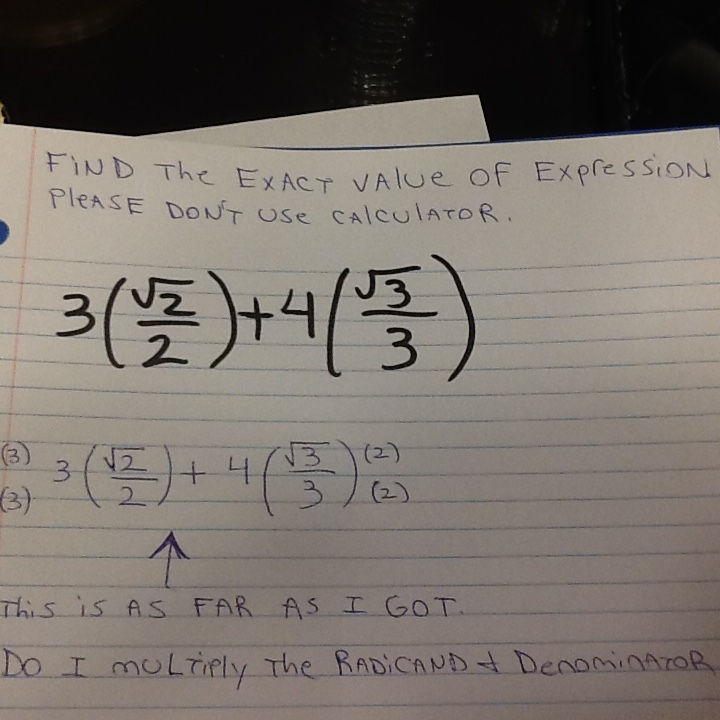 FIND The EXACT VALUE OF Expression
PLEASE DON'T USE CALCULATOR.
3(√2/2)+4(√3/3)
(3)/(3) 3(√2/2) + 4(√3/3) (2)/(2)
↑
This is AS FAR AS I GOT.
DO I MULTIPLY THE RADICAND & DENOMINATOR